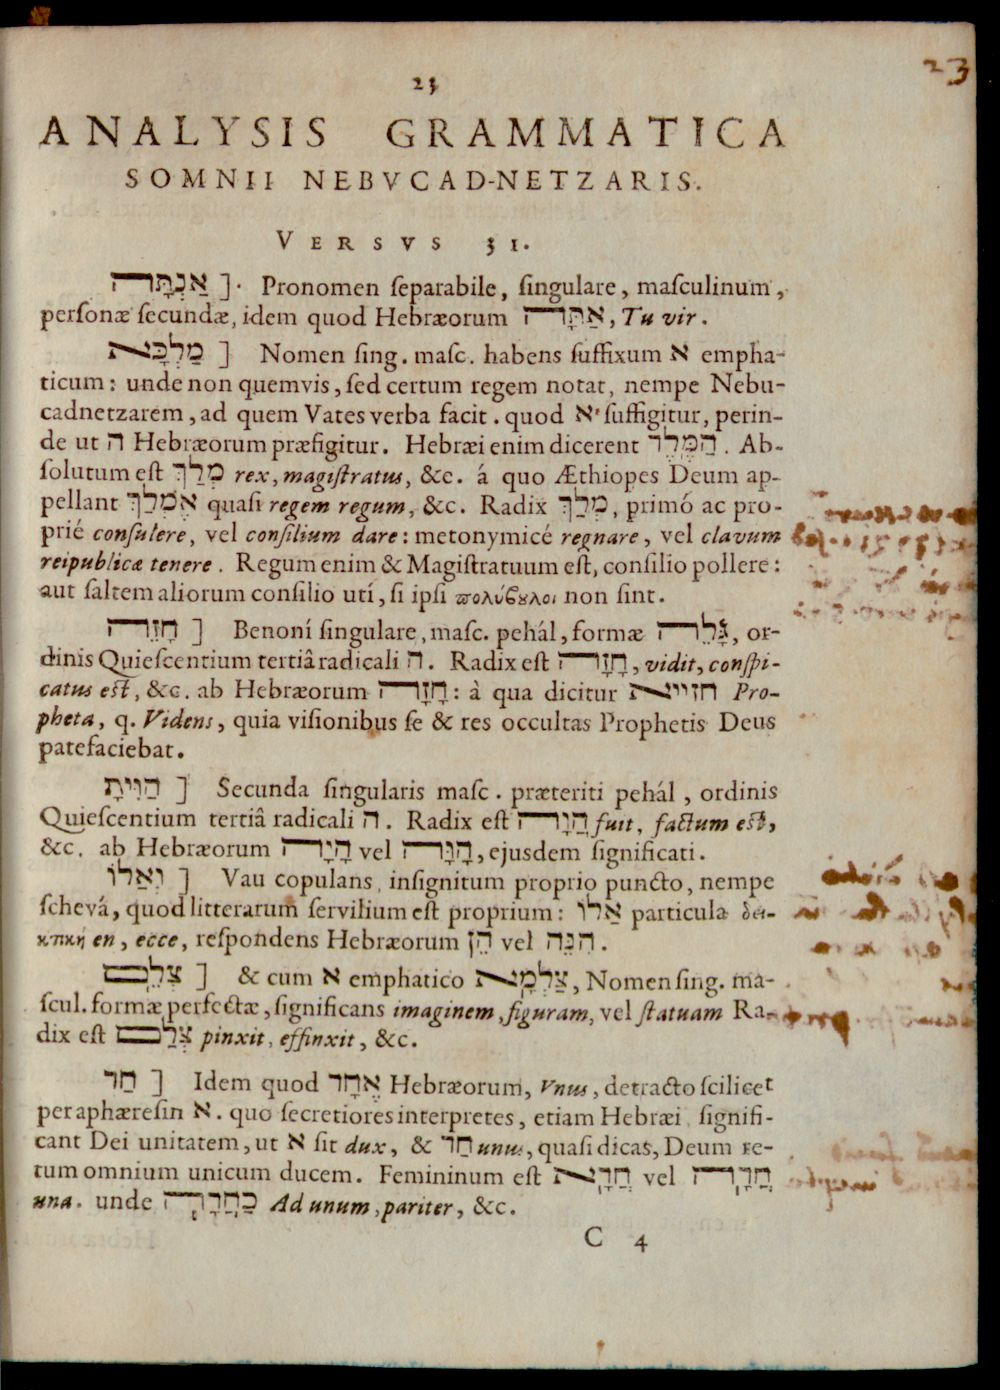 23
23
ANALYSIS GRAMMATICA
SOMNII NEBVCAD-NETZARIS.
VERSVS 31.
אַנְתָּה ]. Pronomen ſeparabile, ſingulare, maſculinum,
perſonæ ſecundæ, idem quod Hebræorum אַתָּה, Tu vir.
מַלְכָּא ] Nomen ſing. maſc. habens ſuffixum א empha-
ticum: unde non quemvis, ſed certum regem notat, nempe Nebu-
cadnetzarem, ad quem Vates verba facit. quod א ſuffigitur, perin-
de ut ה Hebræorum præfigitur. Hebræi enim dicerent הַמֶּלֶךְ. Ab-
ſolutum eſt מְלַךְ rex, magiſtratus, &c. á quo Æthiopes Deum ap-
pellant אֶמְלַךְ quaſi regem regum, &c. Radix מְלַךְ, primó ac pro-
prié conſulere, vel conſilium dare: metonymicé regnare, vel clavum
reipublicæ tenere. Regum enim & Magiſtratuum eſt, conſilio pollere:
aut ſaltem aliorum conſilio uti, ſi ipſi πολύβουλοι non ſint.
חָזֵה ] Benoní ſingulare, maſc. pehál, formæ גָּלֵה, or-
dinis Quieſcentium tertiâ radicali ה. Radix eſt חָזָה, vidit, conſpi-
catus eſt, &c. ab Hebræorum חָזָה: à qua dicitur חזייא Pro-
pheta, q. Videns, quia viſionibus ſe & res occultas Prophetis Deus
patefaciebat.
הַוִיתָ ] Secunda ſingularis maſc. præteriti pehál, ordinis
Quieſcentium tertiâ radicali ה. Radix eſt הֲוָה fuit, factum eſt,
&c. ab Hebræorum הָיָה vel הָוָה, ejusdem ſignificati.
וְאֲלוֹ ] Vau copulans, inſignitum proprio puncto, nempe
ſchevá, quod litterarum ſervilium eſt proprium: אֲלוֹ particula δει-
κτικὴ en, ecce, reſpondens Hebræorum הֵן vel הִנֵּה.
צְלֵם ] & cum א emphatico צַלְמָא, Nomen ſing. ma-
ſcul. formæ perfectæ, ſignificans imaginem, figuram, vel ſtatuam Ra-
dix eſt צְלַם pinxit, effinxit, &c.
חַר ] Idem quod אֶחָר Hebræorum, Vnus, detracto ſcilicet
per aphæreſin א. quo ſecretiores interpretes, etiam Hebræi ſignifi-
cant Dei unitatem, ut א ſit dux, & חַר unus, quaſi dicas, Deum re-
tum omnium unicum ducem. Femininum eſt חֲדָא vel חֲדָה
una. unde כַּחֲדָה Ad unum, pariter, &c.
C 4